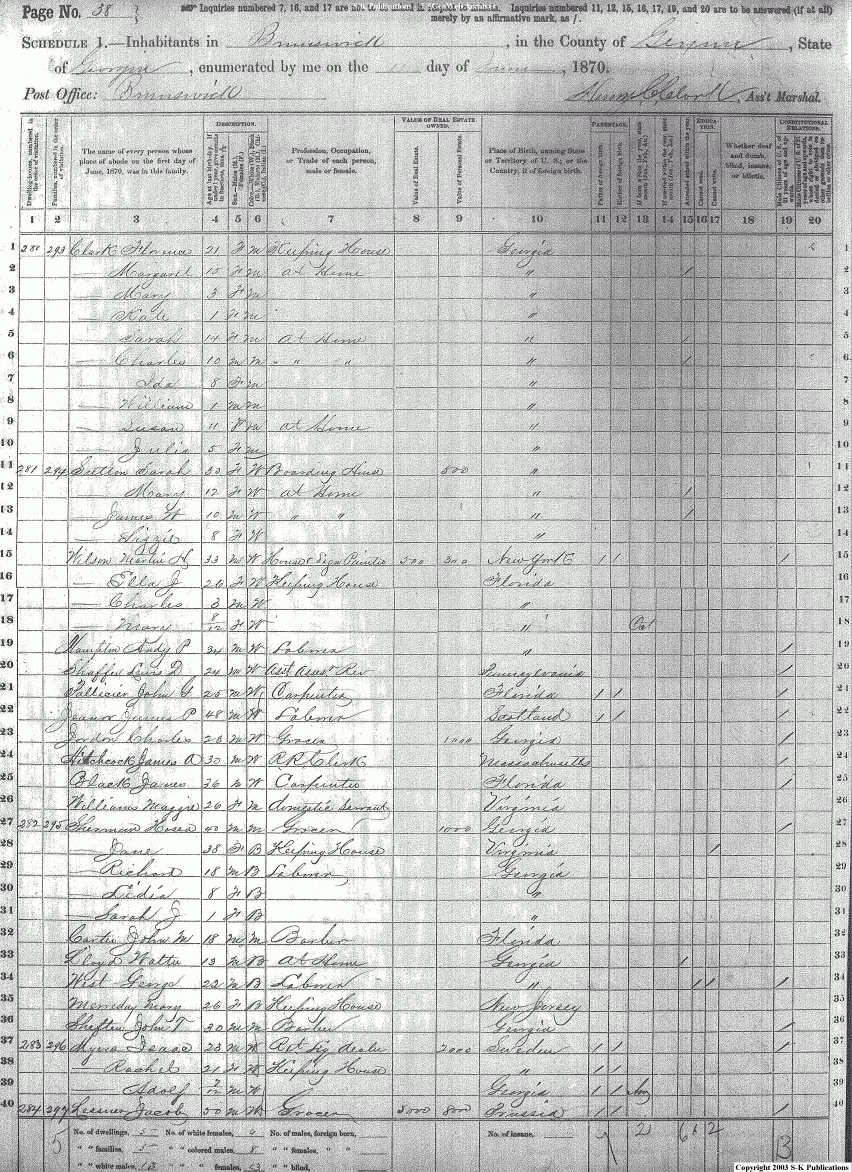 Page No. 38
Inquiries numbered 7, 16, and 17 are not to be asked in respect to infants. Inquiries numbered 11, 12, 15, 16, 17, 19, and 20 are to be answered (if at all)
merely by an affirmative mark, as /.
SCHEDULE 1.—Inhabitants in Brunswick, in the County of Glynn, State
of Georgia, enumerated by me on the 11 day of June, 1870.
Post Office: Brunswick
Ass't Marshal.
DESCRIPTION. VALUE OF REAL ESTATE OWNED. PARENTAGE. EDUCATION. CONSTITUTIONAL RELATIONS.
The name of every person whose place of abode on the first day of June, 1870, was in this family.
Profession, Occupation, or Trade of each person, male or female.
Value of Real Estate. Value of Personal Estate.
Place of Birth, naming State or Territory of U. S.; or the Country, if of foreign birth.
Whether deaf and dumb, blind, insane, or idiotic.
1 2 3 4 5 6 7 8 9 10 11 12 13 14 15 16 17 18 19 20
1 280 293 Clark Florence 21 F M Keeping House Georgia 1
2 — Margaret 15 F M at Home " / 2
3 — Mary 3 F M " 3
4 — Kate 1 F M " 4
5 — Sarah 14 F M At Home " / 5
6 — Charles 10 M M " " " / 6
7 — Ida 8 F M " 7
8 — William 1 M M " 8
9 — Susan 11 F M at Home " 9
10 — Julia 5 F M " 10
11 281 294 Sutton Sarah 30 F W Boarding House 500 " 11
12 — Mary 12 F W at Home " / 12
13 — James W 10 M W " " " / 13
14 — Lizzie 8 F W " 14
15 Wilson Martin H 33 M W House & Sign Painter 500 300 New York / / / 15
16 — Ella J 26 F W Keeping House Florida 16
17 — Charles 3 M W " 17
18 — Mary 8/12 F W " Oct 18
19 Hampton Andy P 34 M W Laborer " / 19
20 Shaffer Lewis D 24 M W Asst Assesr Rev Pennsylvania / 20
21 John G 25 M W Carpenter Florida / / / 21
22 James P 48 M W Laborer Scotland / / / 22
23 Jordon Charles 23 M W Grocer 1000 Georgia / 23
24 Hitchcock James A 30 M W RR Clerk Massachusetts / 24
25 Black James 36 M W Carpenter Florida / 25
26 Williams Maggie 26 F M domestic Servant Virginia 26
27 282 295 Sherman Hosea 40 M M Grocer 1000 Georgia / 27
28 — Jane 38 F B Keeping House Virginia / 28
29 — Richard 18 M B Laborer Georgia 29
30 — Lidia 8 F B " 30
31 — Sarah J 1 F B " 31
32 Carter John M 18 M M Barber Florida 32
33 Lloyd Walter 13 M B At Home Georgia / 33
34 West George 22 M B Laborer " / / / 34
35 Mary 26 F B Keeping House New Jersey 35
36 Sheften John T 30 M M Barber Georgia / 36
37 283 296 Isaac 23 M W 2000 Sweden / / / 37
38 — Rachel 21 F W Keeping House " / / 38
39 — Adolf M W Georgia / / 39
40 284 297 Jacob 50 M W Grocer 5000 800 Prussia / / / 40
No. of dwellings, 5 No. of white females, No. of males, foreign born, No. of insane,
" " families, 5 " " colored males, 8 " " females, " "
" " white males, " " females, " " blind,
Copyright 2003 S-K Publications